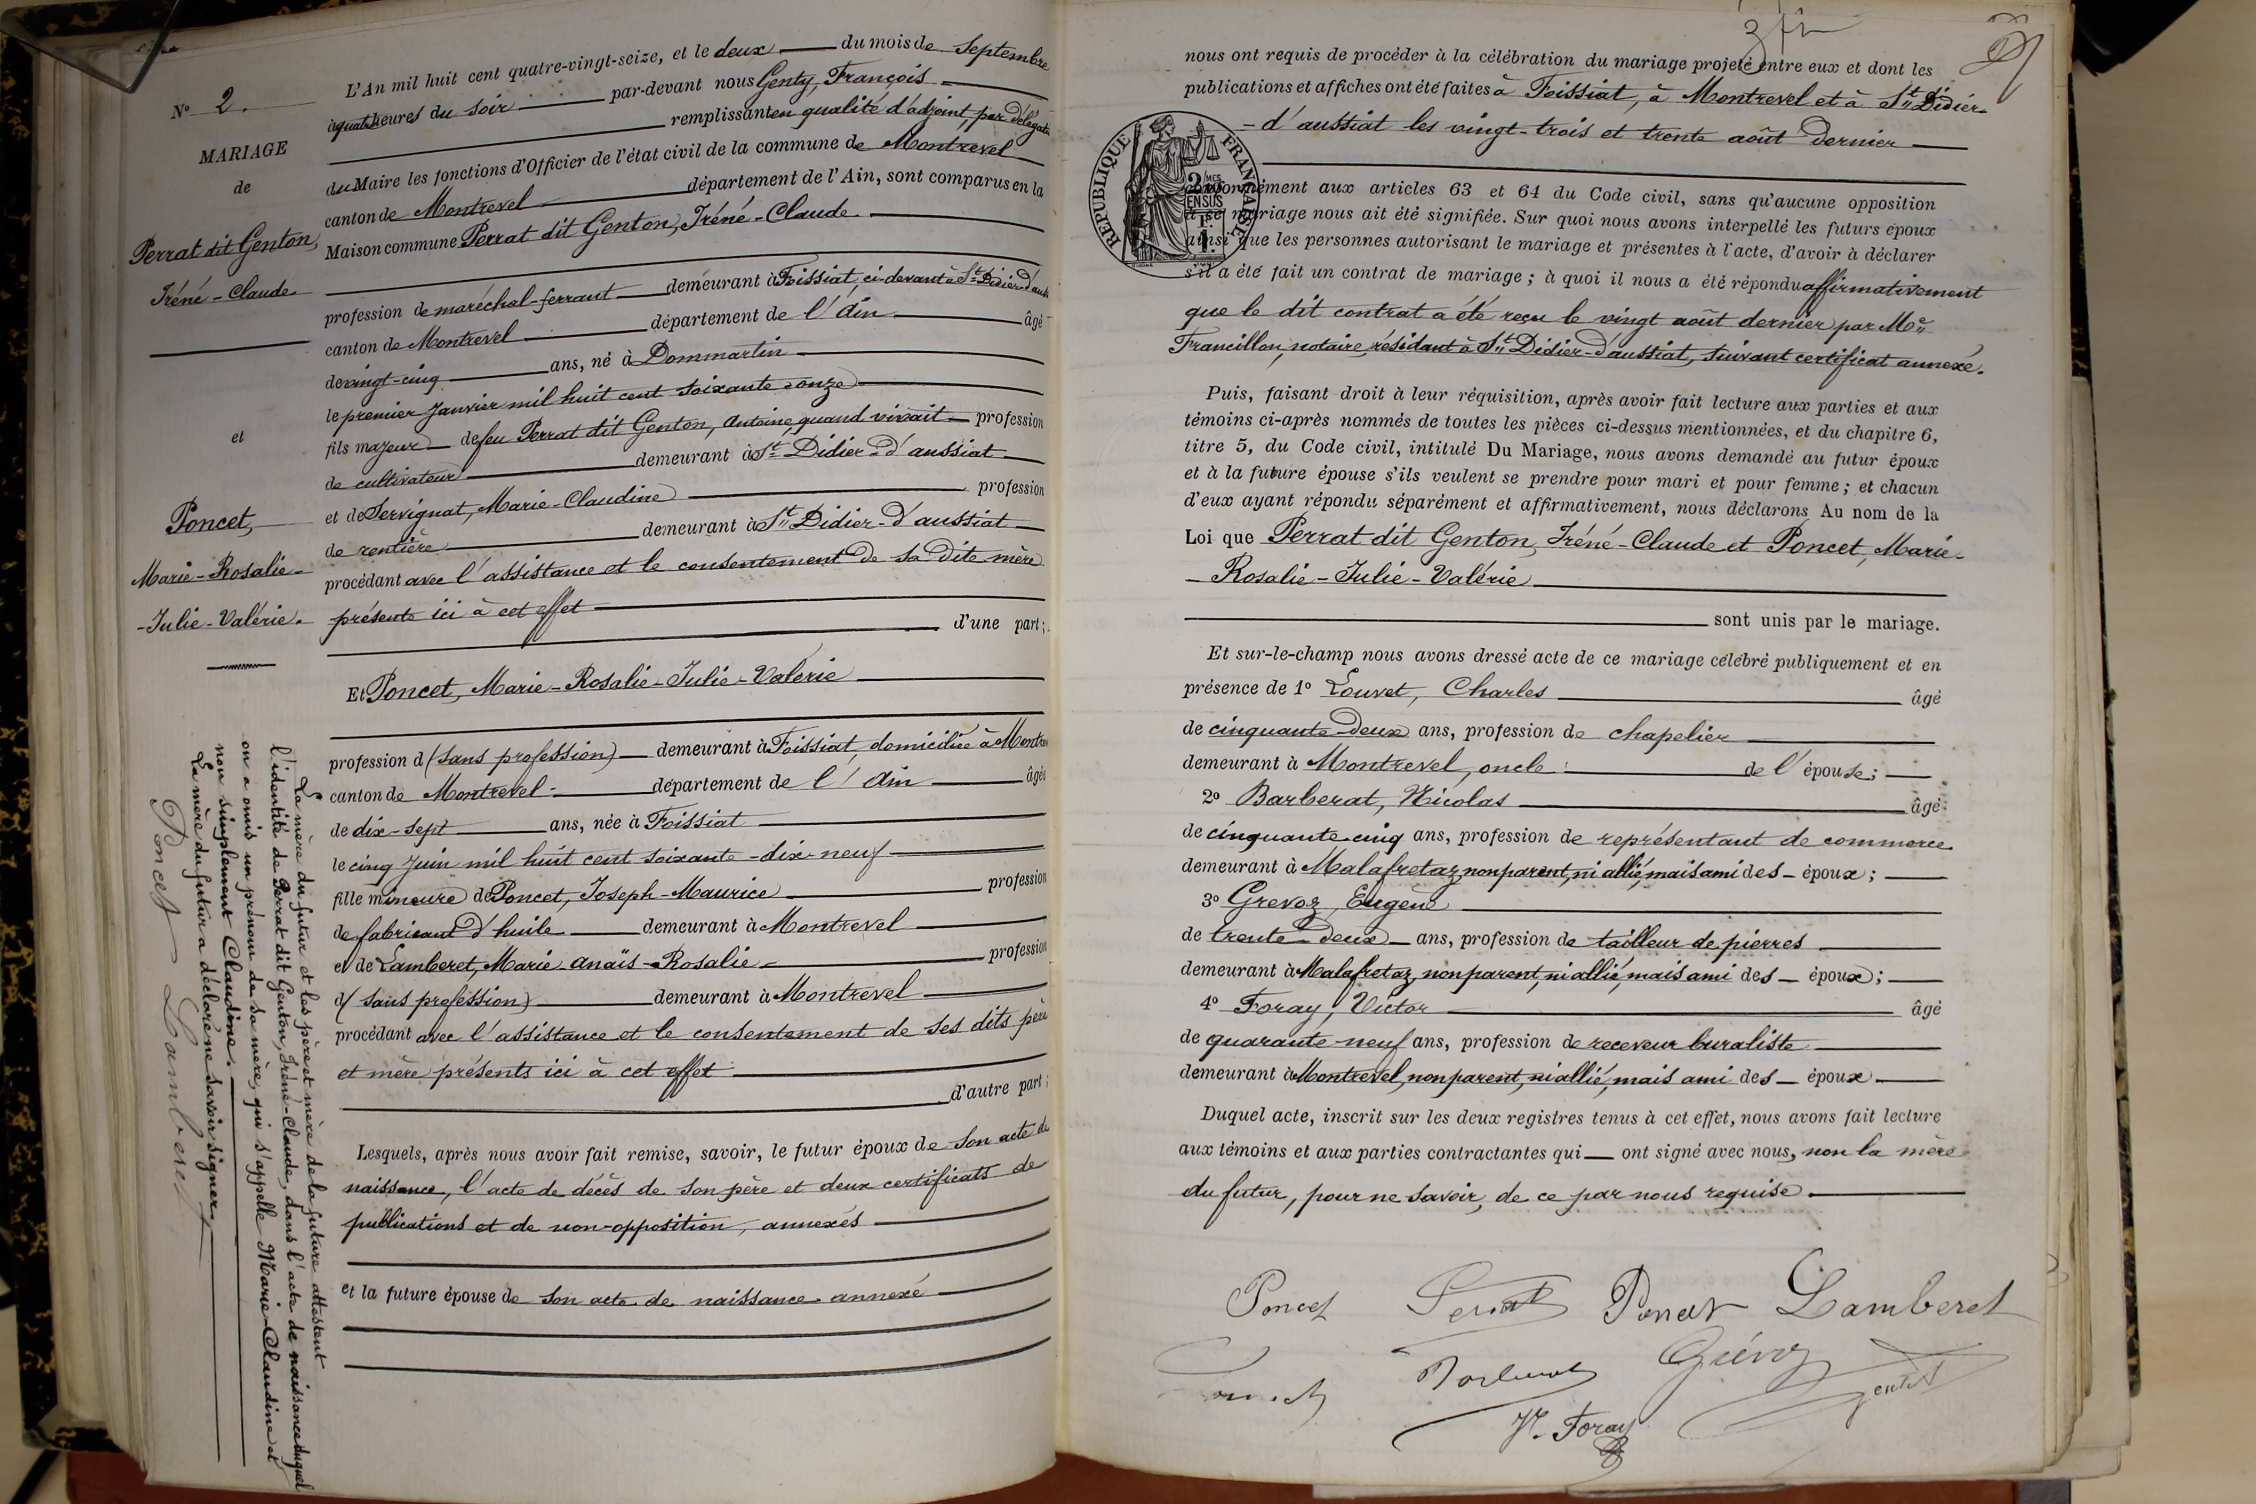 N° 2.
MARIAGE
de
Perrat dit Genton,
Iréné-Claude
et
Poncet,
Marie-Rosalie-
-Julie-Valérie.
L'An mil huit cent quatre-vingt-seize, et le deux du mois de Septembre
à quatre heures du soir par-devant nous Genty, François
remplissant en qualité d'adjoint, par délégation
du Maire les fonctions d'Officier de l'état civil de la commune de Montrevel
canton de Montrevel département de l'Ain, sont comparus en la
Maison commune Perrat dit Genton, Iréné-Claude
profession de maréchal-ferrant demeurant à Foissiat, ci-devant à St Didier d'aussiat
canton de Montrevel département de l'Ain âgé
de vingt-cinq ans, né à Dommartin
le premier Janvier mil huit cent soixante-onze
fils majeur de feu Perrat dit Genton, Antoine, quand vivait profession
de cultivateur demeurant à St Didier-d'aussiat
et de Servignat, Marie-Claudine profession
de rentière demeurant à St Didier-d'aussiat
procédant avec l'assistance et le consentement de sa dite mère
présente ici à cet effet
d'une part;
Et Poncet, Marie-Rosalie-Julie-Valérie
profession d (sans profession) demeurant à Foissiat, domiciliée à Montrevel
canton de Montrevel département de l'Ain âgée
de dix-sept ans, née à Foissiat
le cinq Juin mil huit cent soixante-dix-neuf
fille mineure de Poncet, Joseph-Maurice profession
de fabricant d'huile demeurant à Montrevel
et de Lamberet, Marie Anaïs-Rosalie profession
d (sans profession) demeurant à Montrevel
procédant avec l'assistance et le consentement de ses dits père
et mère présents ici à cet effet
d'autre part;
Lesquels, après nous avoir fait remise, savoir, le futur époux de son acte de
naissance, l'acte de décès de son père et deux certificats de
publications et de non-opposition, annexés
et la future épouse de son acte de naissance annexé
La mère du futur et les père et mère de la future attestent
l'identité de Perrat dit Genton, Iréné-Claude, dans l'acte de naissance duquel
on a omis un prénom de sa mère, qui s'appelle Marie-Claudine et
non simplement Claudine.
La mère du futur a déclaré ne savoir signer.
Poncet Lamberet
nous ont requis de procéder à la célébration du mariage projeté entre eux et dont les
publications et affiches ont été faites à Foissiat, à Montrevel et à St Didier-
-d'aussiat les vingt-trois et trente août dernier
RÉPUBLIQUE FRANÇAISE
conformément aux articles 63 et 64 du Code civil, sans qu'aucune opposition
à ce mariage nous ait été signifiée. Sur quoi nous avons interpellé les futurs époux
ainsi que les personnes autorisant le mariage et présentes à l'acte, d'avoir à déclarer
s'il a été fait un contrat de mariage; à quoi il nous a été répondu affirmativement
que le dit contrat a été reçu le vingt août dernier par Me
Francillon, notaire, résidant à St Didier-d'aussiat, suivant certificat annexé.
Puis, faisant droit à leur réquisition, après avoir fait lecture aux parties et aux
témoins ci-après nommés de toutes les pièces ci-dessus mentionnées, et du chapitre 6,
titre 5, du Code civil, intitulé Du Mariage, nous avons demandé au futur époux
et à la future épouse s'ils veulent se prendre pour mari et pour femme; et chacun
d'eux ayant répondu séparément et affirmativement, nous déclarons Au nom de la
Loi que Perrat dit Genton, Iréné-Claude et Poncet, Marie-
-Rosalie-Julie-Valérie
sont unis par le mariage.
Et sur-le-champ nous avons dressé acte de ce mariage célébré publiquement et en
présence de 1° Louvet, Charles âgé
de cinquante-deux ans, profession de chapelier
demeurant à Montrevel, oncle de l'épouse;
2° Barberat, Nicolas âgé
de cinquante-cinq ans, profession de représentant de commerce
demeurant à Malafretaz, non parent, ni allié, mais ami des époux;
3° Grevoz, Eugène
de trente-deux ans, profession de tailleur de pierres
demeurant à Malafretaz, non parent, ni allié, mais ami des époux;
4° Foray, Victor âgé
de quarante-neuf ans, profession de receveur buraliste
demeurant à Montrevel, non parent, ni allié, mais ami des époux
Duquel acte, inscrit sur les deux registres tenus à cet effet, nous avons fait lecture
aux témoins et aux parties contractantes qui ont signé avec nous, non la mère
du futur, pour ne savoir, de ce par nous requise.
Poncet Perrat Poncet Lamberet
Barberat Grévoz Genty
Vr. Foray